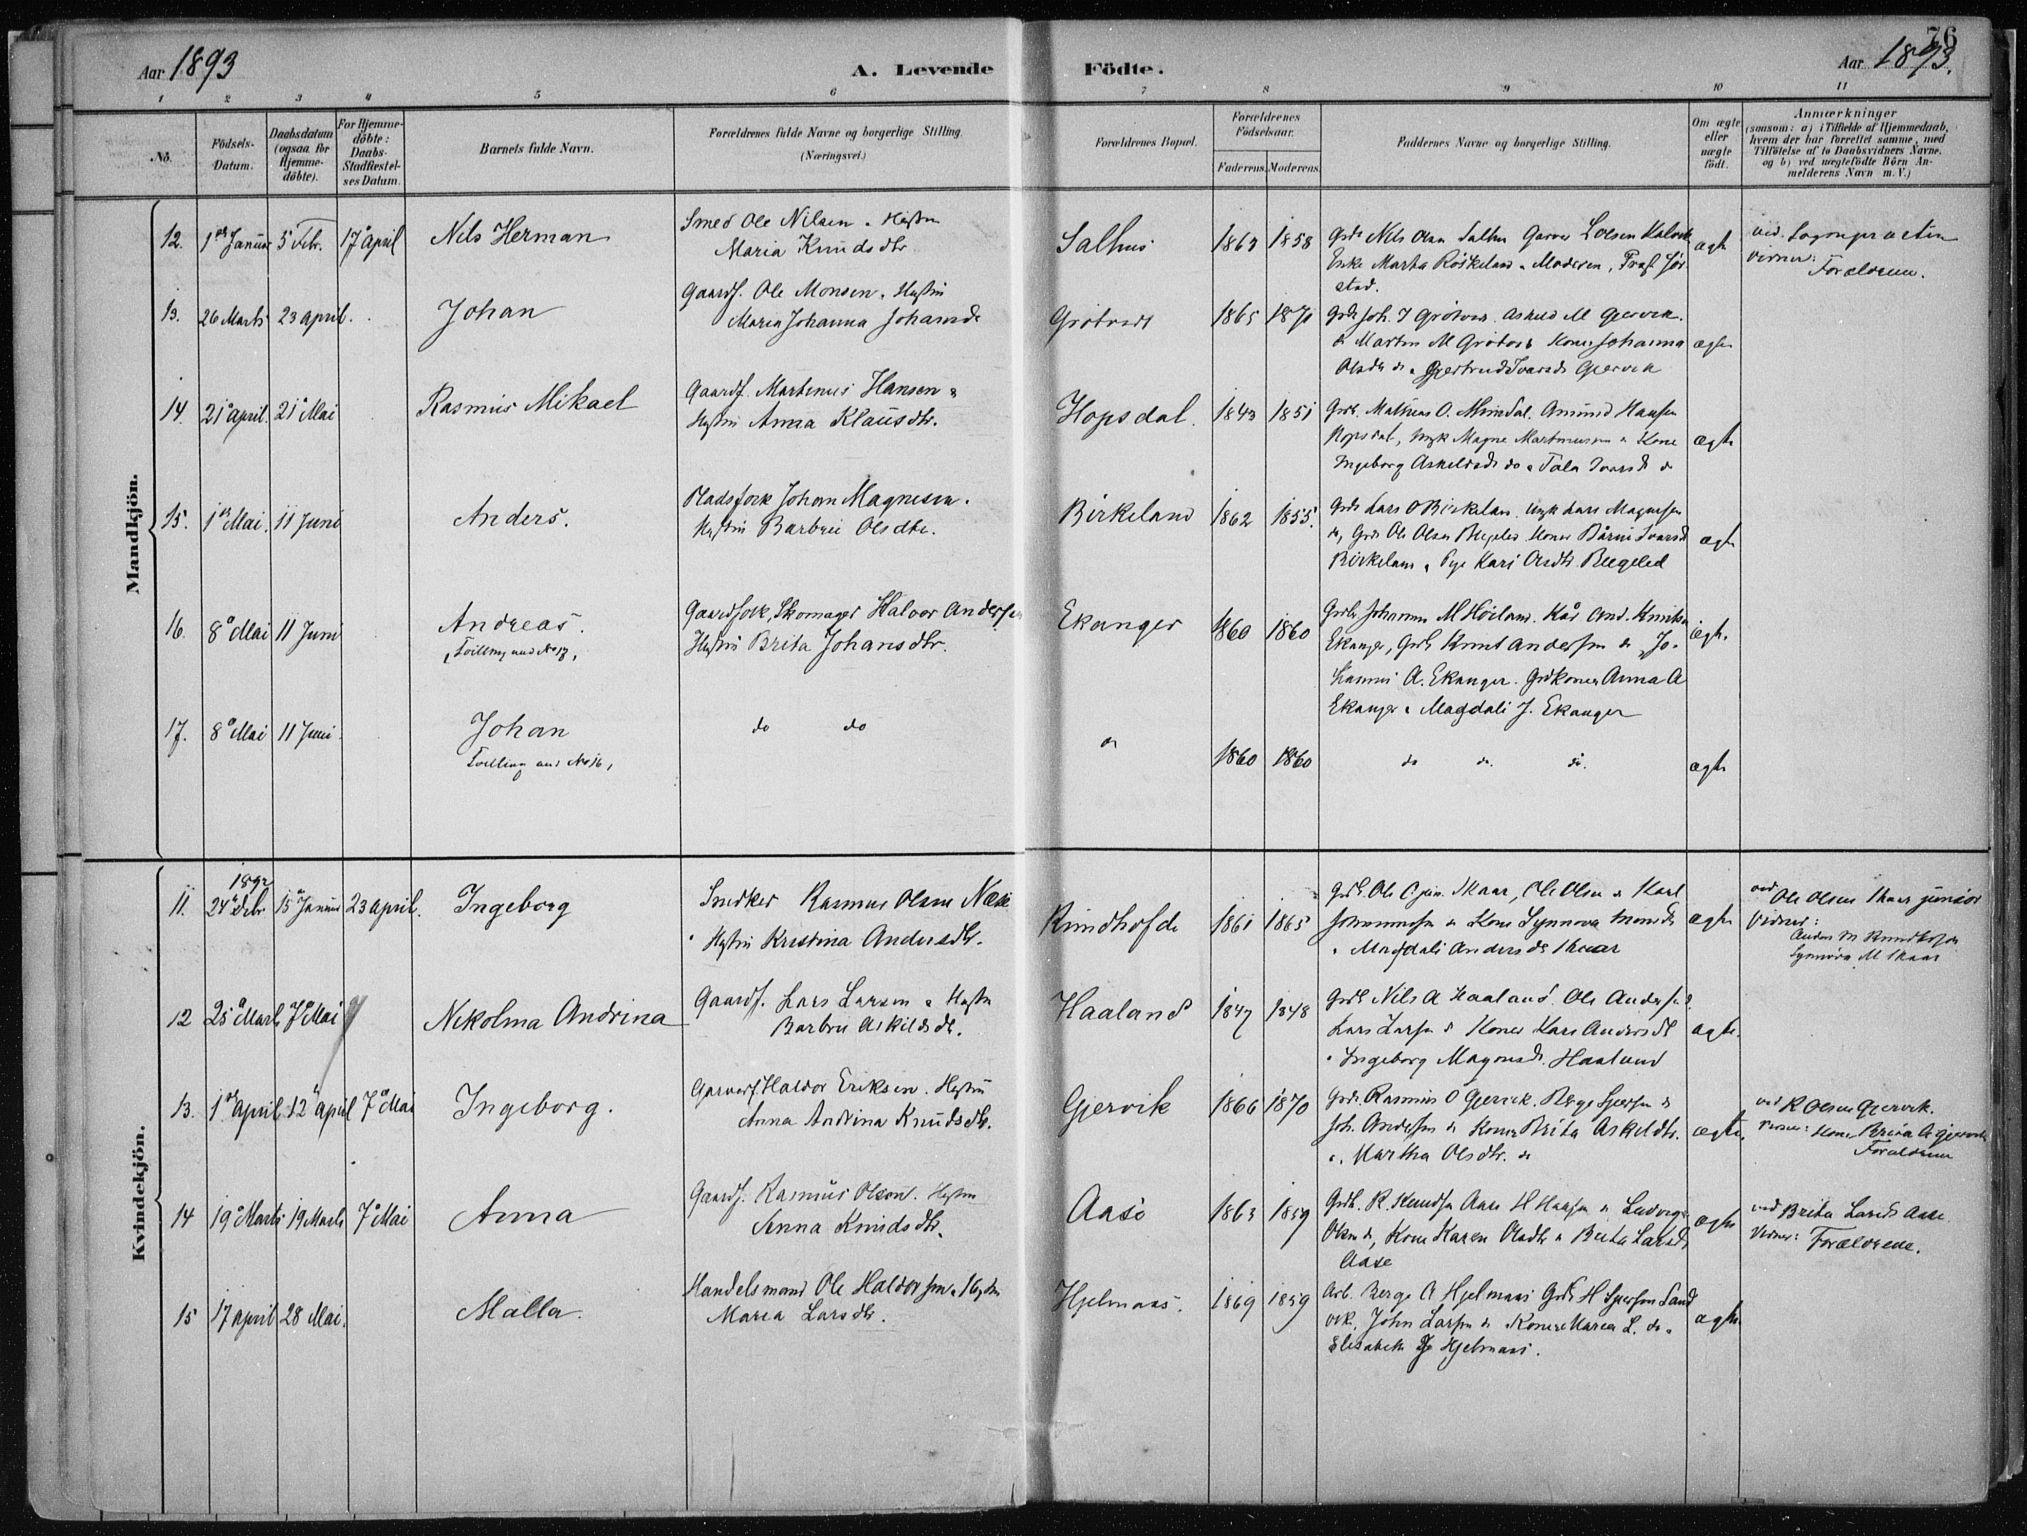 76
Aar 1893
A. Levende
Födte.
Aar 1893.
1 2 3 4 5 6 7 8 9 10 11
No.
Födsels-Datum.
Daabsdatum (ogsaa for Hjemme-döbte).
For Hjemme-döbte: Daabs-Stadfæstel-ses Datum.
Barnets fulde Navn.
Forældrenes fulde Navne og borgerlige Stilling.
(Næringsvei.)
Forældrenes Bopæl.
Forældrenes Födselsaar.
Faderens. Moderens.
Faddernes Navne og borgerlige Stilling.
Om ægte eller uægte födt.
Anmærkninger
(saasom: a) i Tilfælde af Hjemmedaab,
hvem der har forrettet samme, med
Tilföielse af to Daabsvidners Navne,
og b) ved uægtefödte Börn An-
melderens Navn m. V.)
Mandkjön.
12. 1ste Januar 5 Febr. 17 April Nils Herman
Smed Ole Nilsen . Hustru
Maria Knudsdtr
Salhus 1863 1858
Grdb Nils Olsen Salhus Garver L Olsen
Enke Martha Röskeland . Moderen,
ægte
Vidner:
Forældrene.
13. 26 Marts 23 April. Johan
Gaardf. Ole Monsen . Hustru
Maria Johanna Johansd
1865 1870
ægte
14. 21 April. 21 Mai Rasmus Mikael
Gaardf. Martinus Hansen &
Hustru Anna Klausdtr.
Hopsdal. 1843 1851
Grdb. Mathias O. Amund Hansen
Hopsdal, Ungk Magne Martinussen & Kone
Ingeborg Askeldsdt do
ægte
15. 1ste Mai. 11 Juni Anders.
Pladsfolk Johan Magnesen .
Hustru Barbru Olsdtr.
Birkeland 1862 1855.
Grdb Lars O Birkeland. Ungk Lars Magnesen
do, Grdb Ole Olsen
Birkeland . Pige Kari
ægte
16. 8 Mai 11 Juni Andreas.
(Tvilling med No 17)
Gaardfolk, Skomager Halvor Andersen
Hustru Brita Johansdtr.
Ekanger 1860 1860
Grdb Johannes M Höiland. Kår And.
Ekanger, Grdb Knut Andersen do Jo-
hannes A. Ekanger. Grdkoner Anna A
Ekanger & Magdali J. Ekanger
ægte.
17. 8 Mai 11 Juni. Johan
Tvilling med No 16,
do do
do 1860 1860 do do. do. ægte
Kvindekjön.
1892
11. 24 Debr 15 Januar 23 April. Ingeborg
Snedker Rasmus Olsen
Hustru Kristina Andersdtr.
1861 1865
Grdb Ole Skaar, Ole Olsen & Karl
Johannesen do Kone Synnova Monsdtr
. Magdali Andersdtr Skaar
ægte
ved Ole Olsen Skaar junior
Vidner:
Synnöva M Skaar
12 25 Marts 7 Mai Nikolina Andrina
Gaardf. Lars Larsen & Hustru
Barbru Askildsdtr.
Haaland 1847 1848
Grdb Nils A Haaland. Ole Andersen
Lars Larsen do Koner Kari Andersdtr
& Ingeborg Magnesdtr. Haaland
ægte.
13. 1ste April 12 April 7 Mai Ingeborg.
Garverf. Haldor Eriksen . Hustru
Anna Andrina Knudsdtr.
Gjervik 1866 1870
Grdb. Rasmus O Gjervik.
Joh. Andersen do Koner Brita Askeldtr.
&. Martha Olsdtr. do
ægte.
ved R Olsen Gjervik.
Vidner: Kone Brita A Gjervik
Forældrene
14 19 Marts 19 Marts 7 Mai Anna
Gaardf. Rasmus Olsen. Hustru
Anna Knudsdtr.
Aase 1863 1859
Grdb. R. Knudsen Aase H Hansen & Ludvig
Olsen do, Kone Karen Olsdtr & Brita Larsdt
Aase
ægte
ved Brita Larsdt Aase
Vidner: Forældrene.
15 17 April 28 Mai. Malla.
Handelsmand Ole Haldorsen . Hustru
Maria Larsdtr.
Hjelmaas. 1869 1859
Arb. Berge A Hjelmaas Grdb H Sand
vik. John Larsen do Kone Maria L. do.
Elisabeth Hjelmaas.
ægte